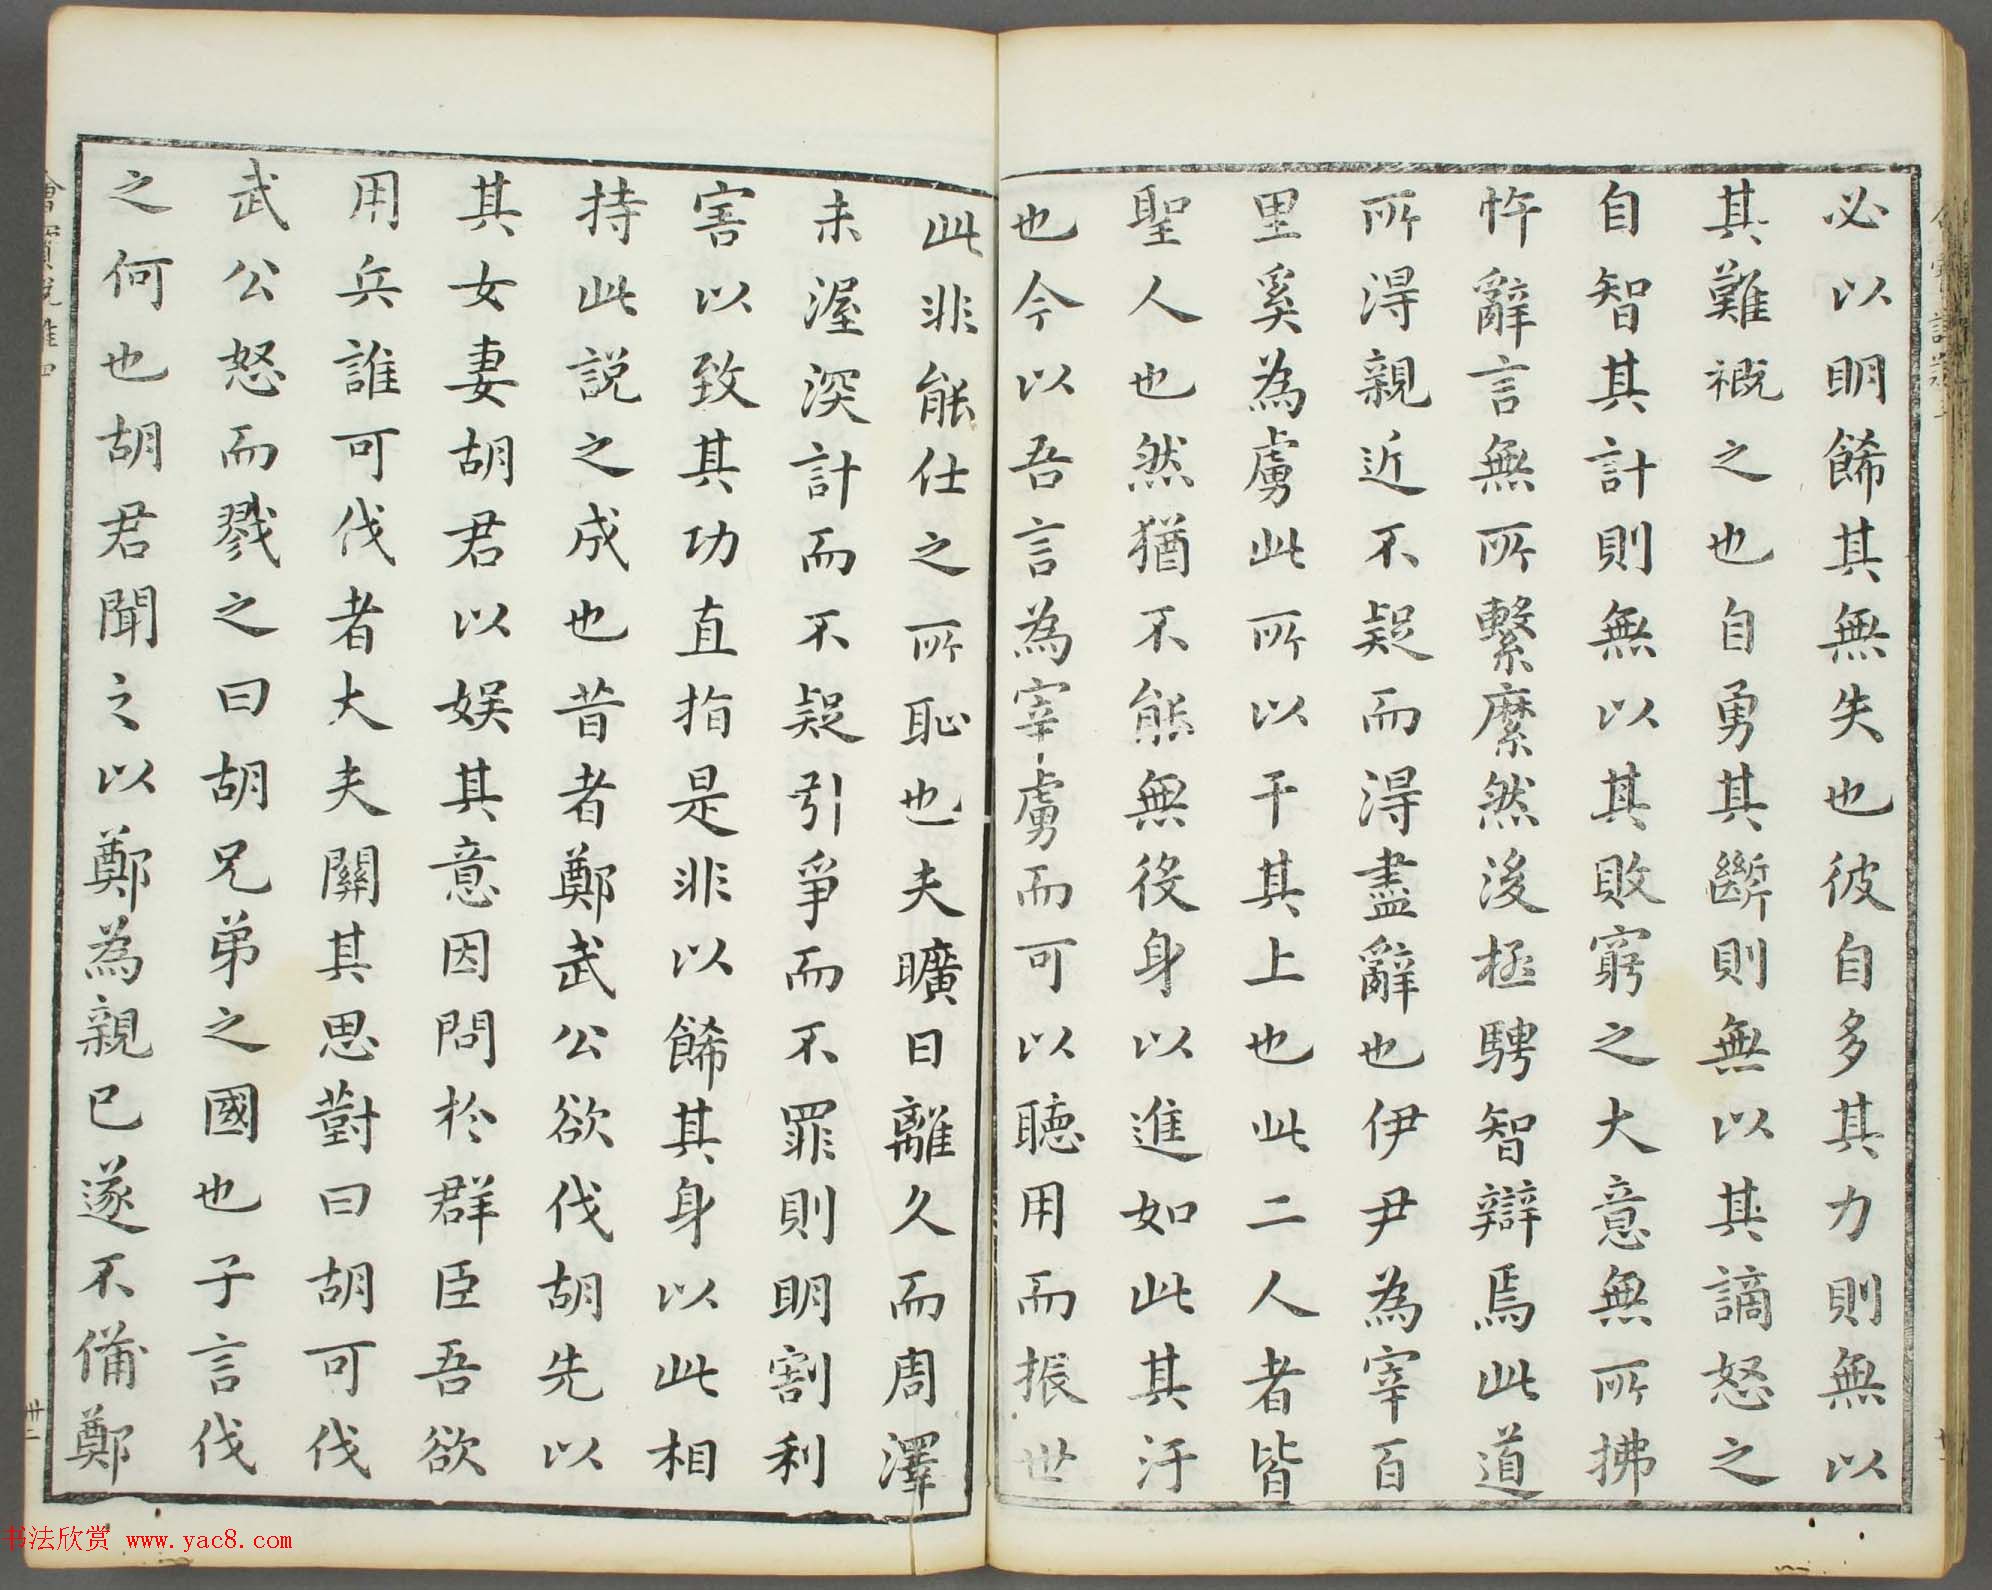 必以明餙其無失也彼自多其力則無以
其難概之也自勇其斷則無以其謫怒之
自智其計則無以其敗窮之大意無所拂
忤辭言無所繫縻然後極騁智辯焉此道
所得親近不疑而得盡辭也伊尹為宰百
里奚為虜此所以干其上也此二人者皆
聖人也然猶不能無役身以進如此其汙
也今以吾言為宰虜而可以聽用而振世
此非能仕之所恥也夫曠日離久而周澤
未渥深計而不疑引爭而不罪則明割利
害以致其功直指是非以餙其身以此相
持此說之成也昔者鄭武公欲伐胡先以
其女妻胡君以娛其意因問於群臣吾欲
用兵誰可伐者大夫關其思對曰胡可伐
武公怒而戮之曰胡兄弟之國也子言伐
之何也胡君聞之以鄭為親已遂不備鄭
书法欣赏 www.yac8.com